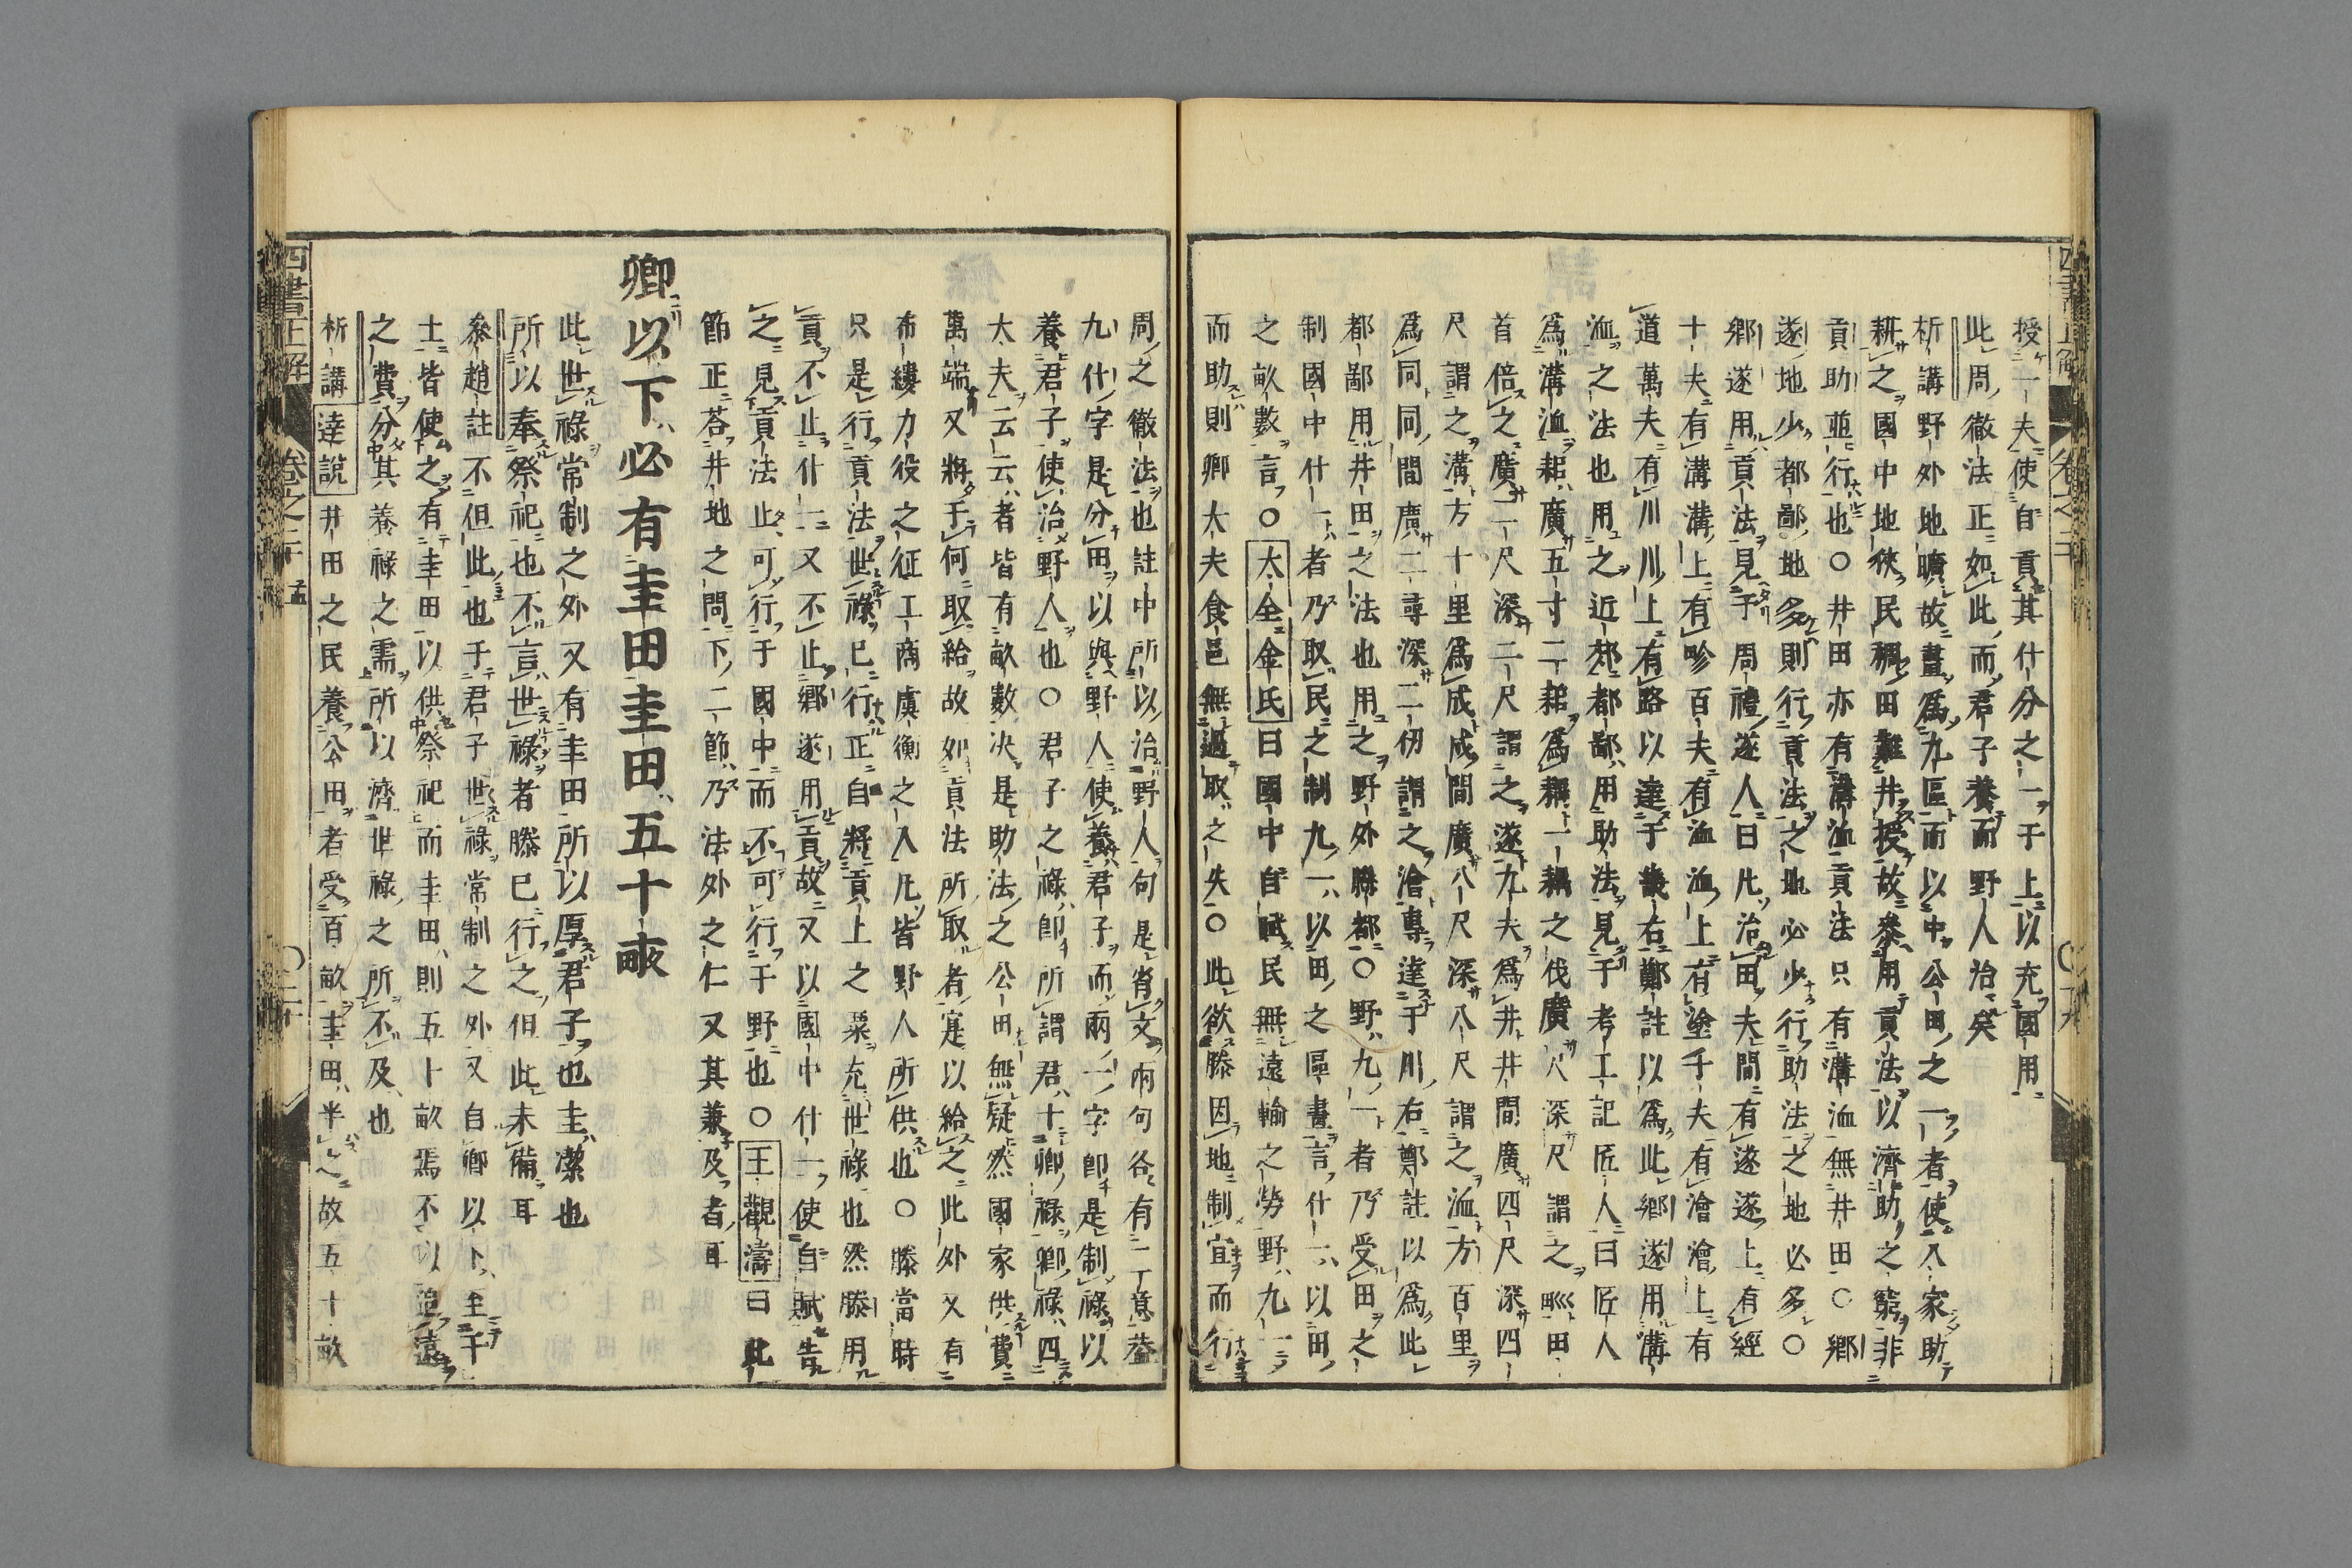 授一夫使自貢其什分之一于上以充國用
此周徹法正如此而君子養而野人治矣
析講野外地曠故畫為九區而以中公田之一者使八家助
耕之國中地狹民稠田難井授故參用貢法以濟助之窮非
貢助並行也〇井田亦有溝洫貢法只有溝洫無井田〇鄉
遂地少都鄙地多則行貢法之地必少行助法之地必多〇
鄉遂用貢法見于周禮遂人曰凡治田夫間有遂遂上有經
十夫有溝溝上有畛百夫有洫洫上有塗千夫有澮澮上有
道萬夫有川川上有路以達于畿右鄭註以為此鄉遂用溝
洫之法也用之近郊都鄙用助法見于考工記匠人曰匠人
為溝洫耜廣五寸二耜為耦一耦之伐廣尺深尺謂之𤰕田
首倍之廣二尺深二尺謂之遂九夫為井井間廣四尺深四
尺謂之溝方十里為成成間廣八尺深八尺謂之洫方百里
為同同間廣二尋深二仞謂之澮專達于川右鄭註以為此
都鄙用井田之法也用之野外縣都〇野九一者乃受田之
制國中什一者乃取民之制九一以田之區畫言什一以田
之畝數言〇太全金氏曰國中自賦民無遠輸之勞野九一
而助則卿大夫食邑無過取之失〇此欲滕因地制宜而行
周之徹法也註中所以治野人句是肖文兩句各有二意葢
九什字是分田以與野人使養君子而兩一字卽是制祿以
養君子使治野人也〇君子之祿卽所謂君十卿祿卿祿四
大夫云云者皆有畝數决是助法之公田無疑然國家供費
萬端又將于何取給故如貢法所取者寔以給之此外又有
布縷力役之征工商虞衡之入凡皆野人所供也〇滕當時
只是行貢法世祿已行正自將貢上之粟充世祿也然滕用
貢不止什一又不止鄉遂用貢故又以國中什一使自賦告
之見貢法止可行于國中而不可行于野也〇王觀濤曰此
節正荅井地之問下二節乃法外之仁又其兼及者耳
卿以下必有圭田圭田五十畝
此世祿常制之外又有圭田所以厚君子也圭潔也
所以奉祭祀也不言世祿者滕已行之但此未備耳
叅趙註不但此也于君子世祿常制之外又自卿以下至于
士皆使之有圭田以供祭祀而圭田則五十畝焉不以追遠
之費分其養祿之需所以濟世祿之所不及也
析講達說井田之民養公田者受百畝圭田半之故五十畝
四書正解 卷之二十 孟 〇二十